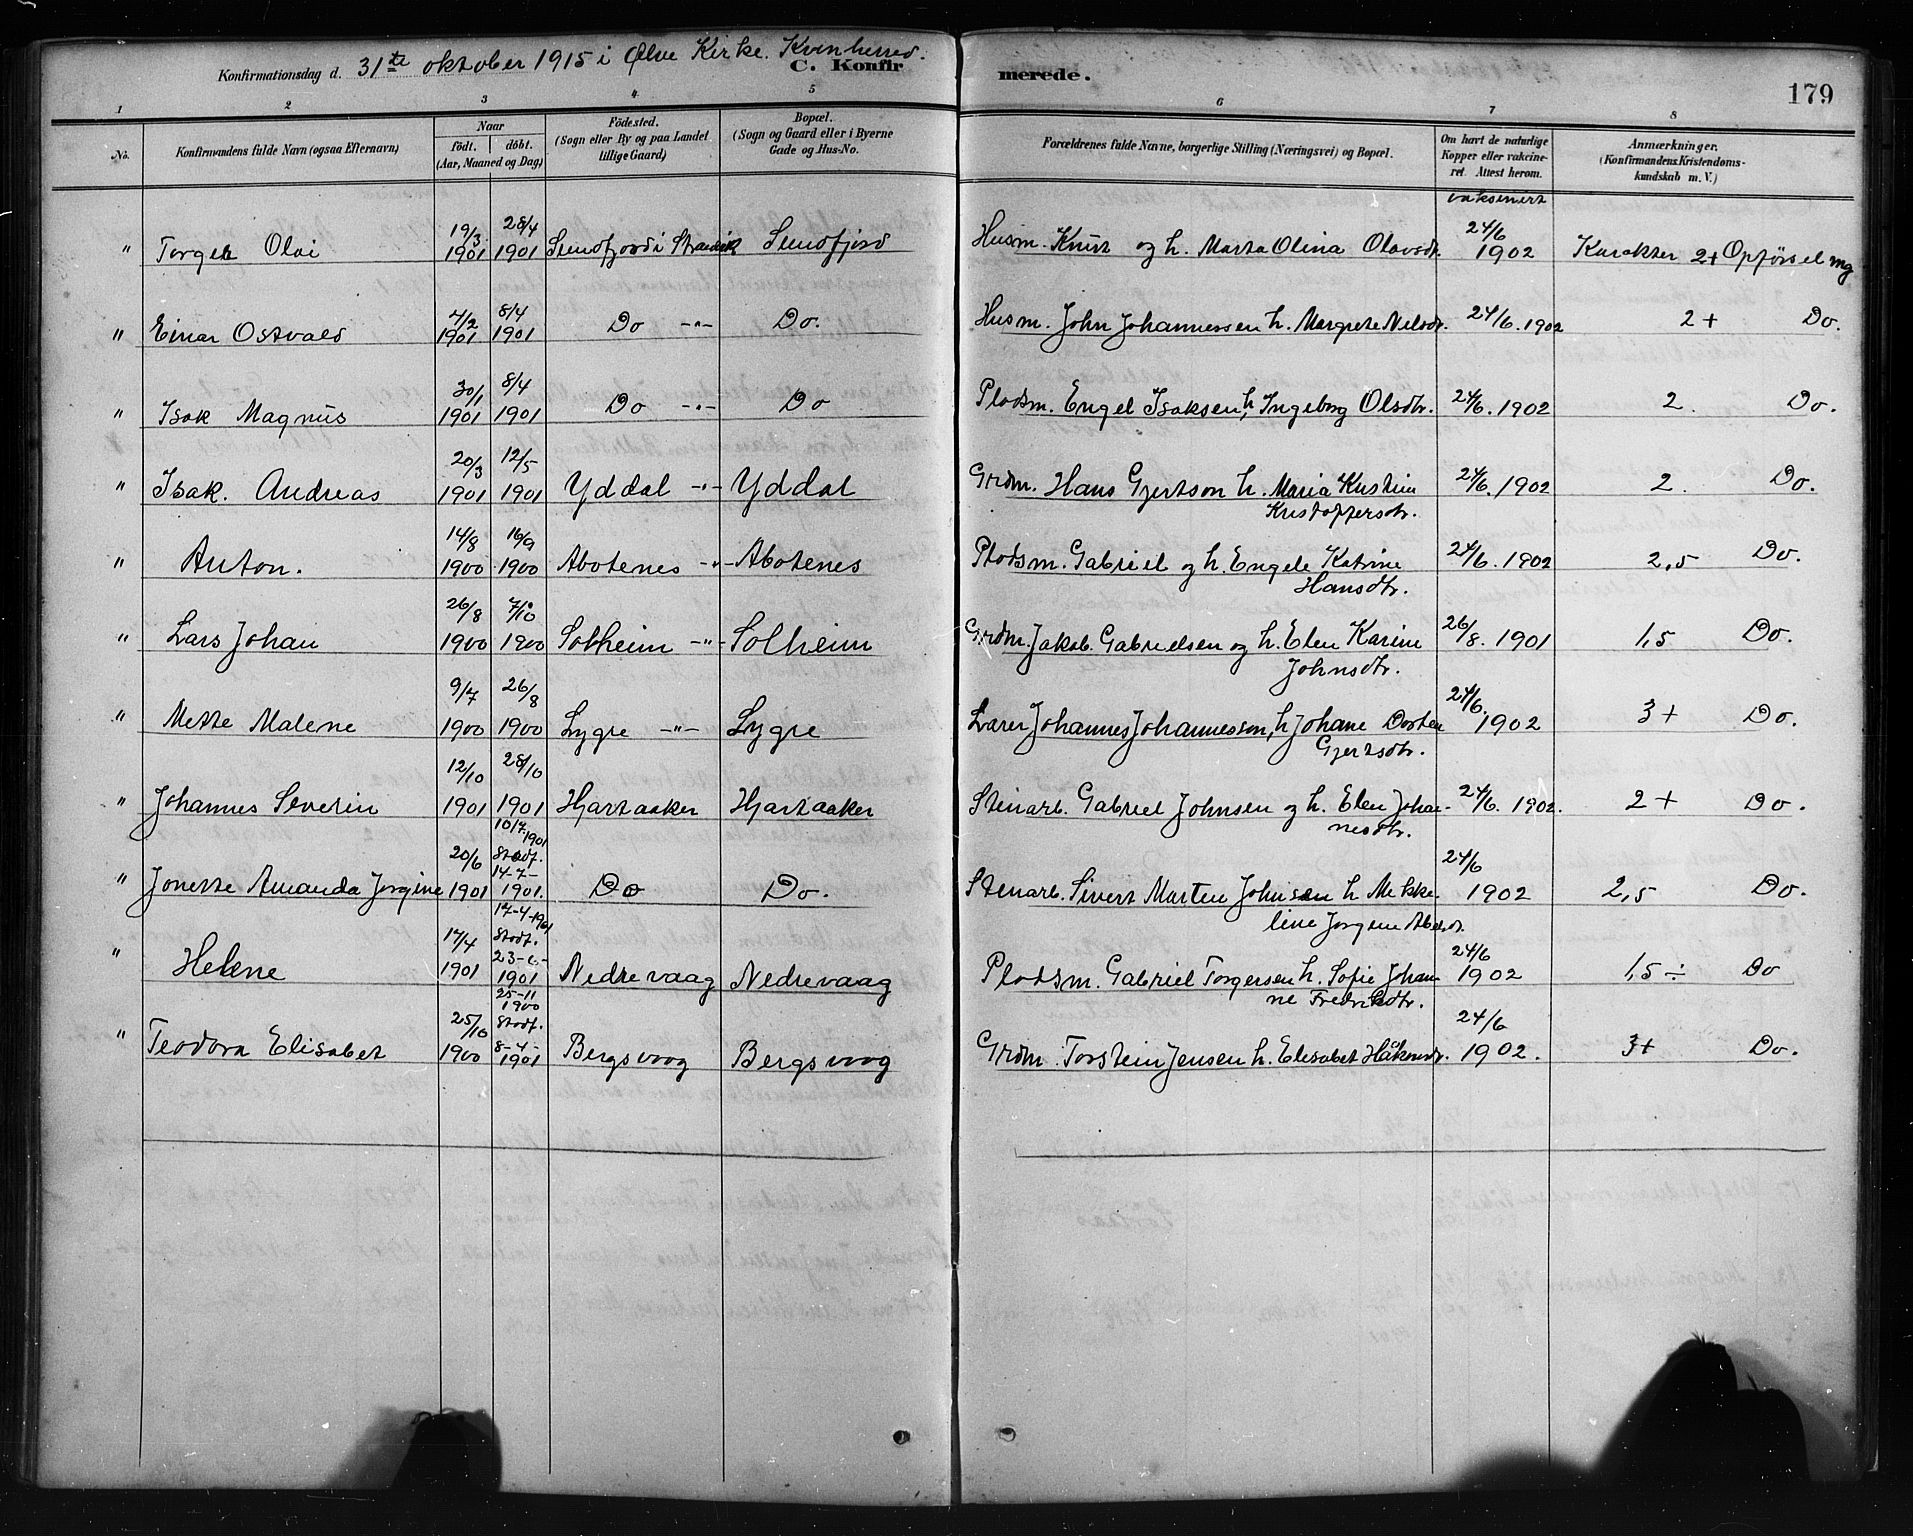 Konfirmationsdag d. 31te oktober 1915 i Ølve Kirke. Kvinherred.
C. Konfirmerede.
179
1 2 3 4 5 6 7 8
No.
Konfirmandens fulde Navn (ogsaa Efternavn)
Naar
födt. döbt.
(Aar, Maaned og Dag)
Födested.
(Sogn eller By og paa Landet
tillige Gaard)
Bopæl.
(Sogn og Gaard eller i Byerne
Gade og Hus-No.
Forældrenes fulde Navne, borgerlige Stilling (Næringsvei) og Bopæl.
Om havt de naturlige
Kopper eller vakcine-
ret. Attest herom.
Anmærkninger.
(Konfirmandens Kristendoms-
kundskab m. V.)
vaksinert
" Torger Olai 19/3 1901 28/4 1901 i Sendfjord Husm. Knut og h. Marta Olina Olavsdtr. 24/6 1902 Karakter 2+ Opførsel mg
" Einar Ostvald 7/2 1901 8/4 1901 Do -"- Do. Husm. John Johannessen h. Margrete Nilsdr. 24/6. 1902 2+ Do.
" Isak Magnus 30/1 1901 8/4 1901 Do -"- Do Pladsm. Engel Isaksen, h Ingeborg Olsdtr. 24/6. 1902 2. Do.
" Isak. Andreas 20/3 1901 12/5 1901 Yddal -"- Yddal Grdm. Hans Gjertson h. Maria Kristin
Kristoffersdtr. 24/6. 1902 2. Do.
" Anton. 14/8 1900 16/9 1900 Abotenes -"- Abotenes Pladsm. Gabriel og h. Engele Katrine
Hansdtr. 24/6. 1902 2,5 Do.
" Lars Johan 26/8 1900 7/10 1900 Solheim -"- Solheim Grdm. Jakob Gabrielsen og h. Elen Karine
Johnsdtr. 26/8. 1901 1,5 Do.
" Mette Malene 9/7 1900 26/8 1900 Lygre -"- Lygre Lærer Johannes Johannesson, h Johane Dortea
Gjertsdtr. 24/6. 1902 3+ Do.
" Johannes Severin 12/10 1901 28/10 1901 Hjartaaker Hjartaaker Stenarb. Gabriel Johnsen og h. Elen Johan-
nesdtr. 24/6. 1902. 2+ Do.
" Jonette Amanda Jorgine 20/6 1901 10/7 1901 Stadf. 14-7-1901. Do Do. Stenarb. Sivert Marten Johnsen h Mekke-
line Jorgine 24/6 1902 2,5 Do.
" Helene 17/4 1901 17-4-1901 Stadf. 1901 Nedrevaag Nedrevaag Pladsm. Gabriel Torgersen h. Sofie Johan
ne Fredriksdtr. 24/6 1902 1,5 ÷ Do
" Teodora Elisabet 25/10 1900 25-11 1900 Stadf. 8-4-1901 Bergsvaag Bergsvaag Grdm. Torstein Jensen h. Elisabet Håkonsdr. 24/6 1902. 3+ Do.